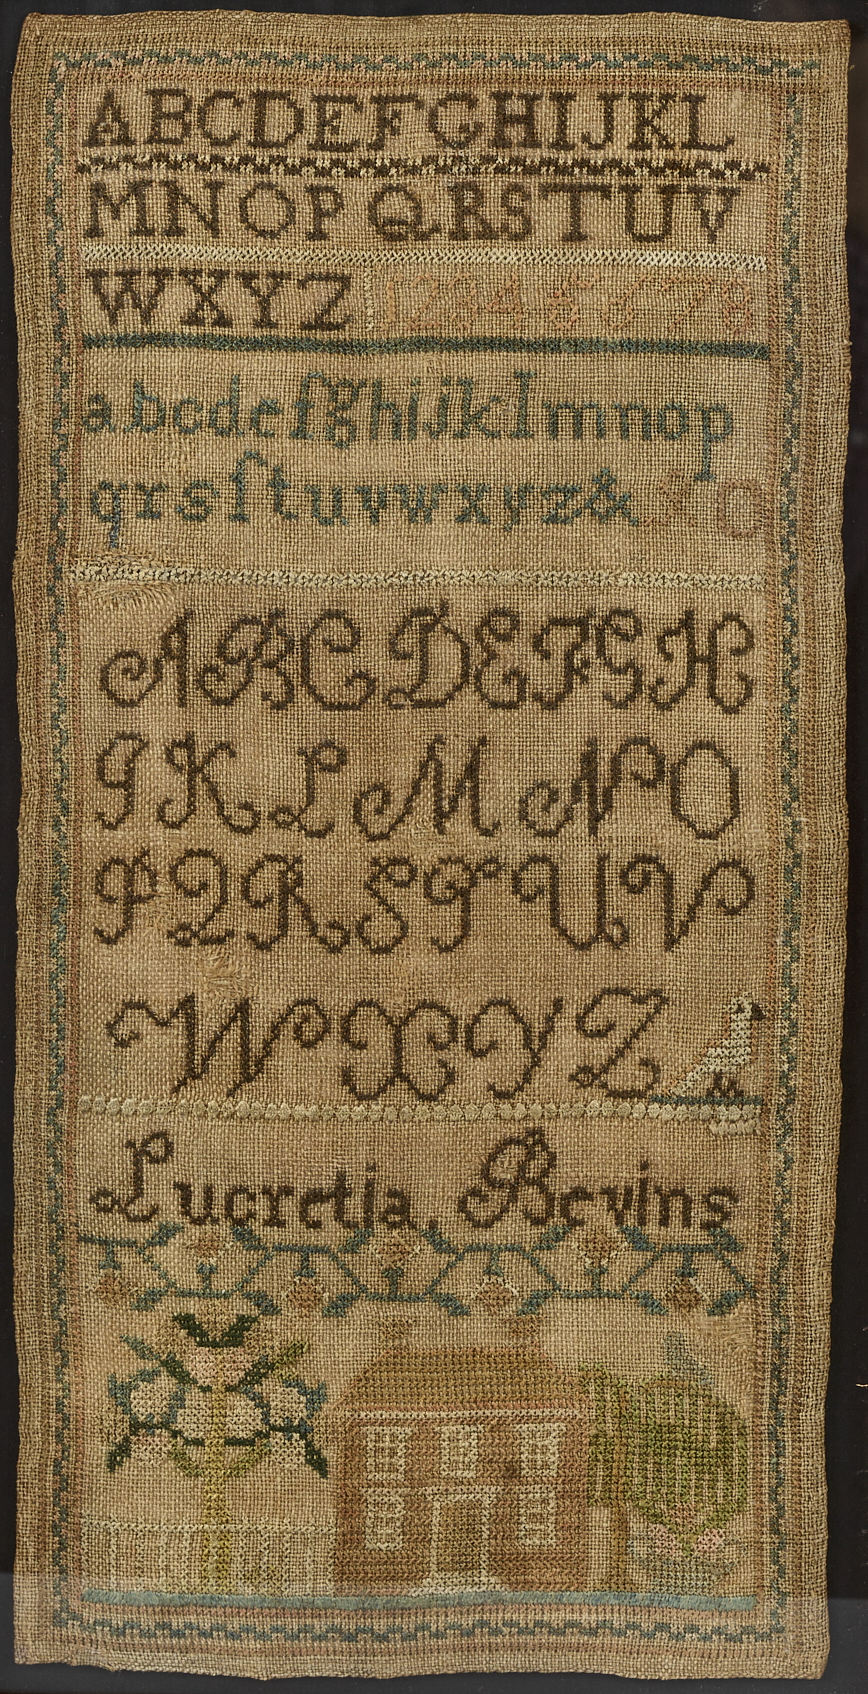 ABCDEFGHIJKL
MNOPQRSTUV
WXYZ 12345678
abcdefghijklmnop
qrsſtuvwxyz&
ABCDEFGH
IKLMNO
PQRSTUV
WXYZ
Lucretia, Bevins